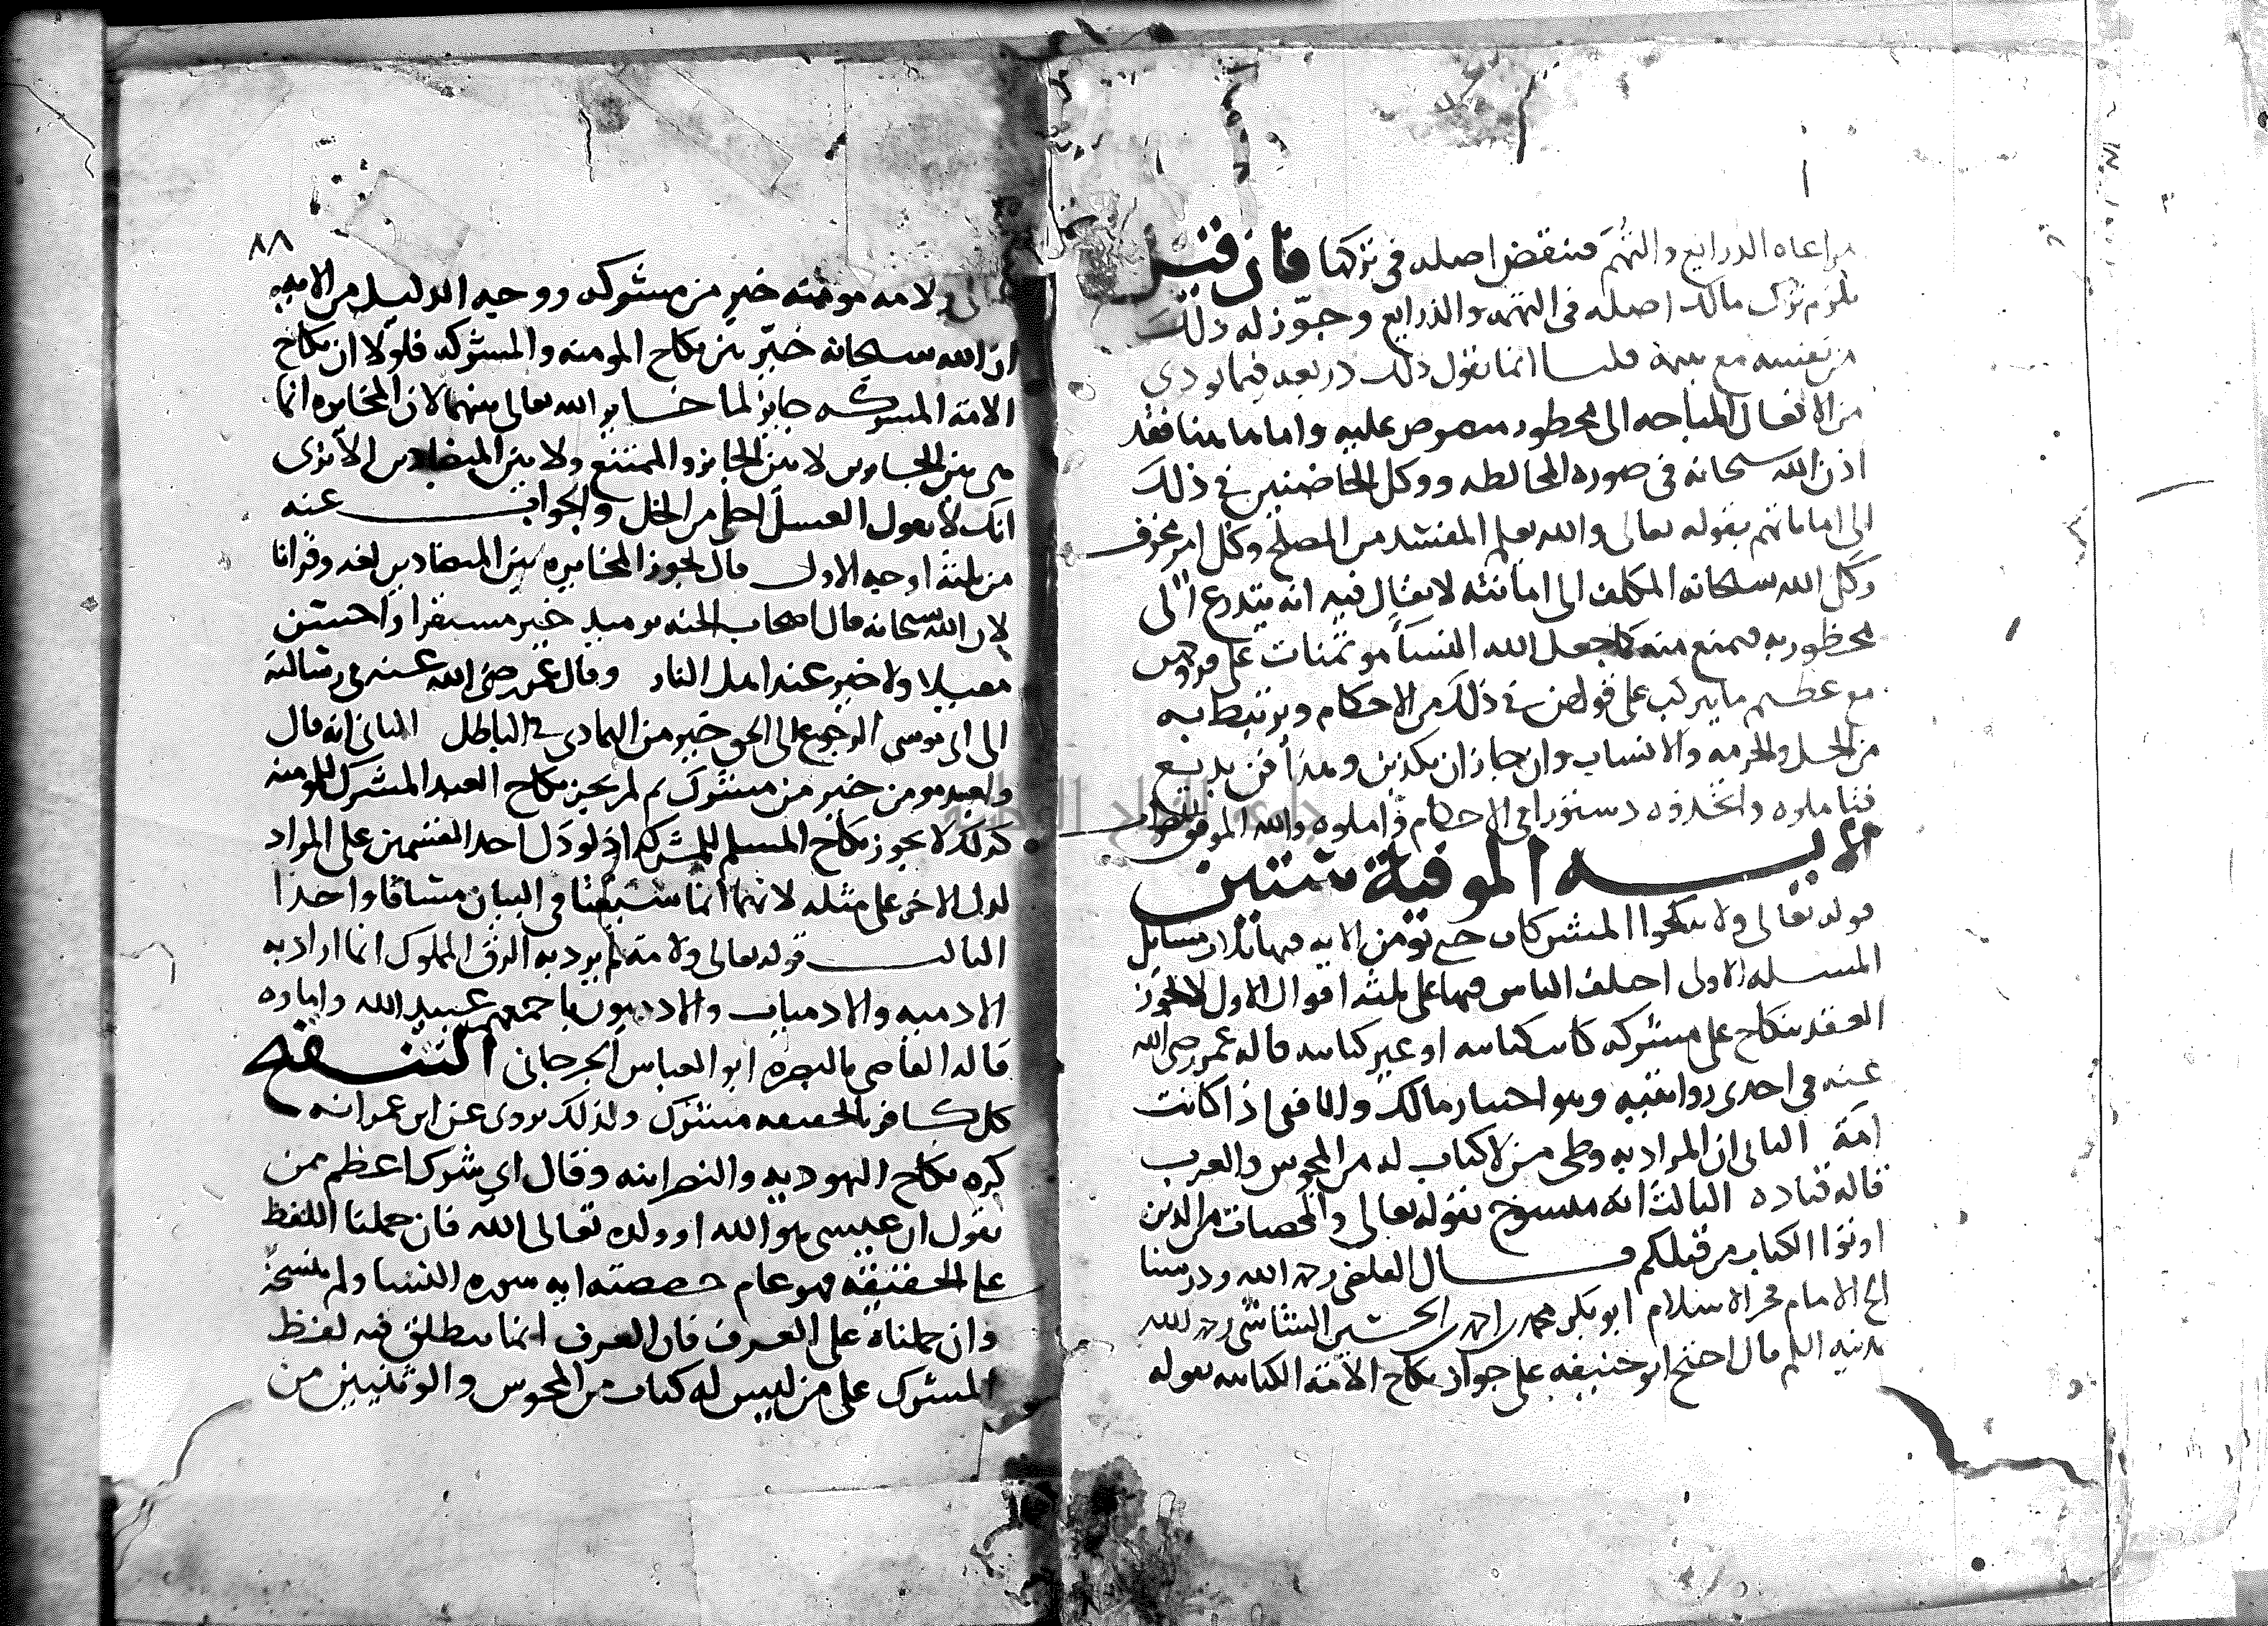 مراعاه الذرايع والتهم فينقض اصله في تركها فان قيل
يلزم ترك مالك اصله في التهمه والذرايع وجوّز له ذلك
من نفسه مع يتيمة قلنا انما نقول ذلك ذريعه فيما يودي
من الافعال المباحه الى محظور منصوص عليه واما هاهنا فقد
اذن الله سبحانه في صوره المخالطه ووكل الحاضنين في ذلك
الى اماناتهم بقوله تعالى والله يعلم المفسد من المصلح وكل امر مخوف
وكل الله سبحانه المكلف الى امانته لا يقال فيه انه يتذرع الى
محظور به فيمنع منه كما جعل الله النسا موتمنات على فروجهن
مع عظيم ما يتركب على قولهن في ذلك من الاحكام ويرتبط به
من الحل والحرمه والانساب وان جاز ان يكذبن وهذا فن بديع
فتاملوه واتخذوه دستورا في الاحكام واملوه والله الموفق للصواب
الايــــه الموفية ستين
قوله تعالى ولا تنكحوا المشركات حتى تومن الايه فيها ثلاث مسايل
المسله الاولى اختلف الناس فيها على ثلثه اقوال الاول لا يجوز
العقد بنكاح على مشركه كانت كتابيه او غير كتابيه قاله عمر رضي الله
عنه في احدى روايتيه وهو اختيار مالك والشافعي اذا كانت
امة الثاني ان المراد به وطي من لا كتاب له من المجوس والعرب
قاله قتاده الثالث انه منسوخ بقوله تعالى والمحصنات من الذين
اوتوا الكتاب من قبلكم قال القاضي رحمه الله ودرسنا
الشيخ الامام فخر الاسلام ابو بكر محمد بن احمد بن الحسين الشاشي رحمه الله
بمدينه السلم قال احتج ابو حنيفه على جواز نكاح الامة الكتابيه بقوله
٨٨
تعالى ولامه مومنه خير من مشركه ووجه الدليل من الايه
ان الله سبحانه خيّر بين نكاح المومنه والمشركه فلولا ان نكاح
الامة المشركه جايز لما خاير الله تعالى بينهما لان المخايره انما
هي بين الجايزين لا بين الجايز والممتنع ولا بين المتضادين الا ترى
انك لا تقول العسل احلى من الخل والجواب عنه
من ثلثة اوجه الاول قال تجوز المخايره بين المتضادين لغه وقرانا
لان الله سبحانه قال اصحاب الجنه يوميذ خير مستقرا واحسن
مقيلا ولا خير عند اهل النار وقال عمر رضي الله عنه في رسالته
الى ابي موسى الرجوع الى الحق خير من التمادي في الباطل الثاني انه قال
ولعبد مومن خير من مشرك ثم لم يجز نكاح العبد المشرك للمومنه
كذلك لا يجوز نكاح المسلم للمشركه اذ لو دل احد القسمين على المراد
لدل الاخر على مثله لانهما انما سيقتا في البيان مساقا واحدا
الثالث قوله تعالى ولامة لم يرد به الرق المملوك انما اراد به
الادميه والادميات والادميون باجمعهم عبيد الله واماوه
قاله القاضي بالبصره ابو العباس الجرجاني التنقيح
كل كافر بالحقيقه مشرك ولذلك يروى عن ابن عمر انه
كره نكاح اليهوديه والنصرانيه وقال اي شرك اعظم ممن
يقول ان عيسى هو الله او ولده تعالى الله فان حملنا اللفظ
على الحقيقة فهو عام خصصته ايه سورة النسا ولم تنسخه
وان حملناه على العرف فان العرف انما ينطلق فيه لفظ
المشرك على من ليس له كتاب من المجوس والوثنيين من